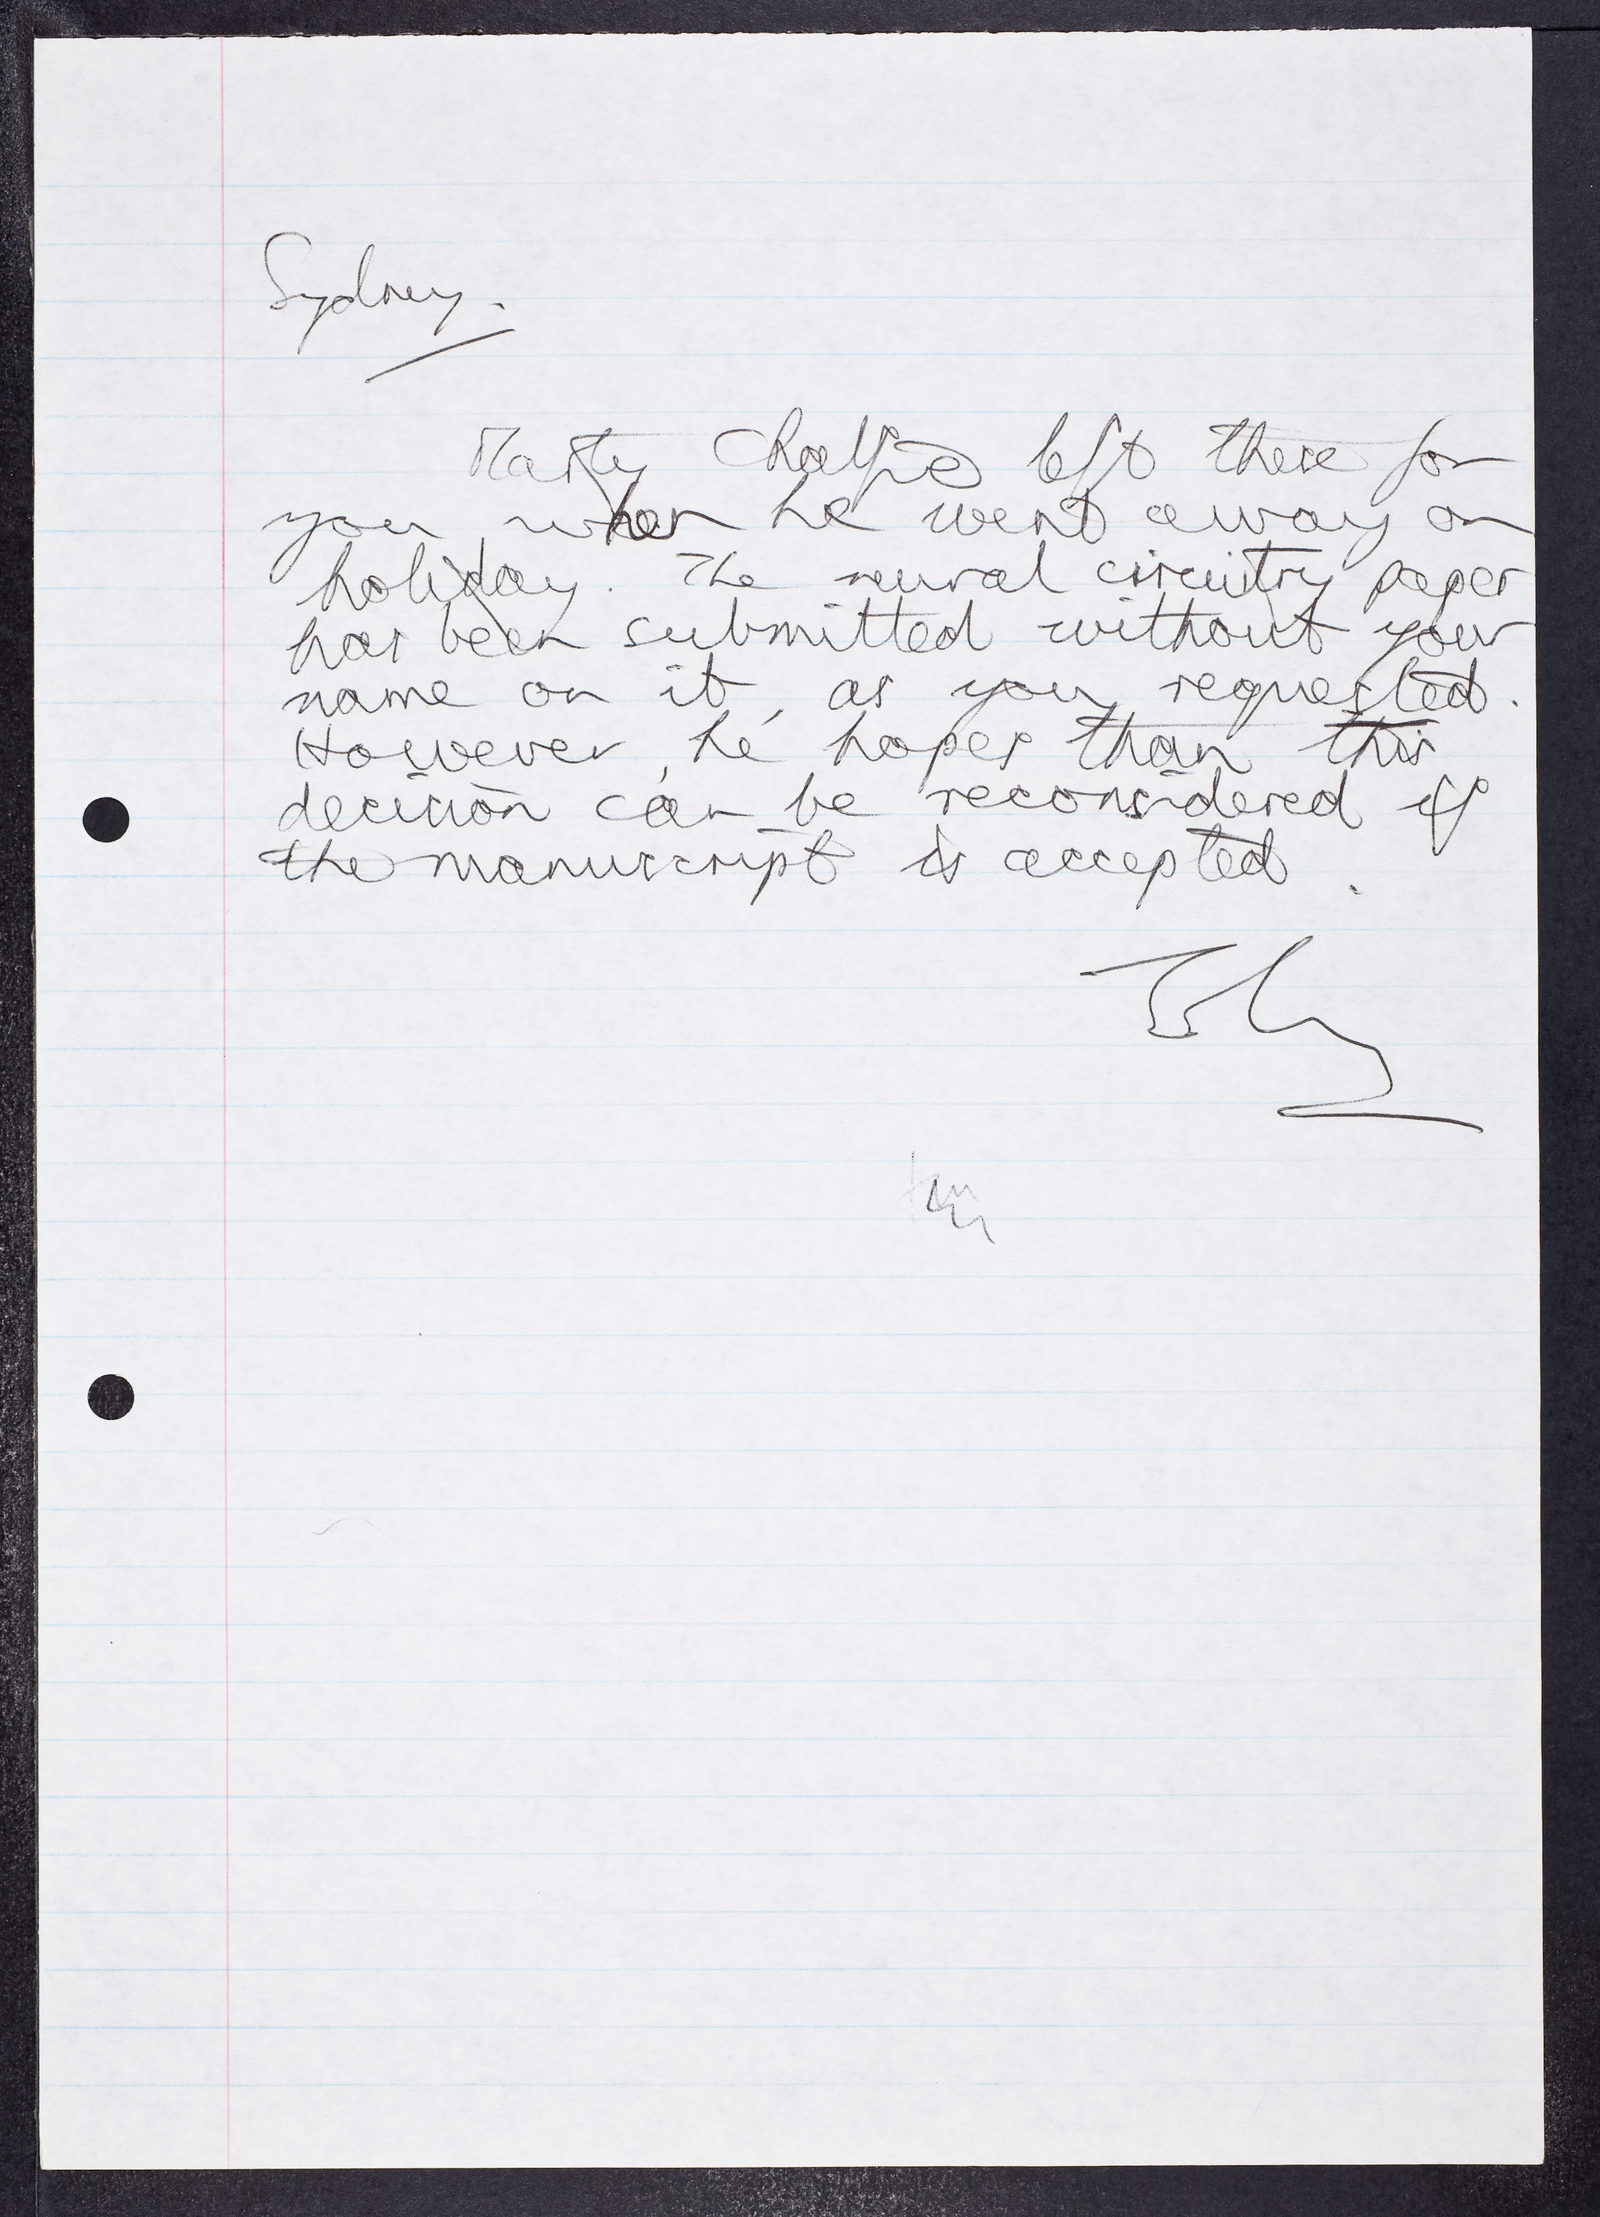 Sydney.
Marty Chalfie left these for
you when he went away on
holiday. The neural circuitry paper
has been submitted without your
name on it, as you requested.
However, he hopes than this
decision can be reconsidered if
the manuscript is accepted.